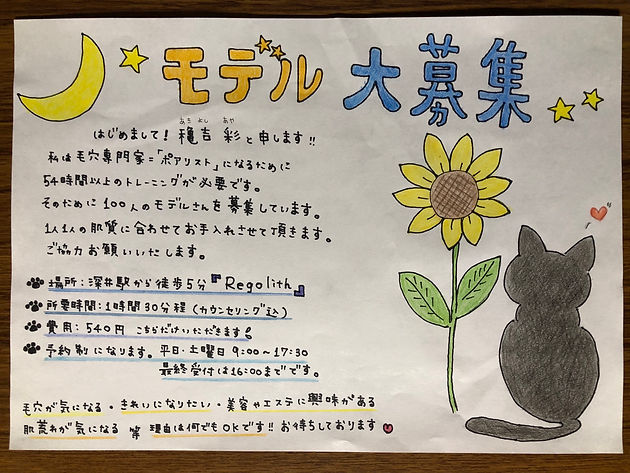 モデル 大募集
あき よし あや
はじめまして！穐吉 彩と申します!!
私は毛穴専門家＝「ポアリスト」になるために
54時間以上のトレーニングが必要です。
そのために100人のモデルさんを募集しています。
1人1人の肌質に合わせてお手入れさせて頂きます。
ご協力お願いいたします。
場所：深井駅から徒歩5分『Regolith』
所要時間：1時間30分程（カウンセリング込）
費用：540円 こちらだけいただきます!
予約制になります。平日・土曜日 9:00〜17:30
最終受付は16:00までです。
毛穴が気になる・きれいになりたい・美容やエステに興味がある
肌荒れが気になる 等 理由は何でもOKです!! お待ちしております